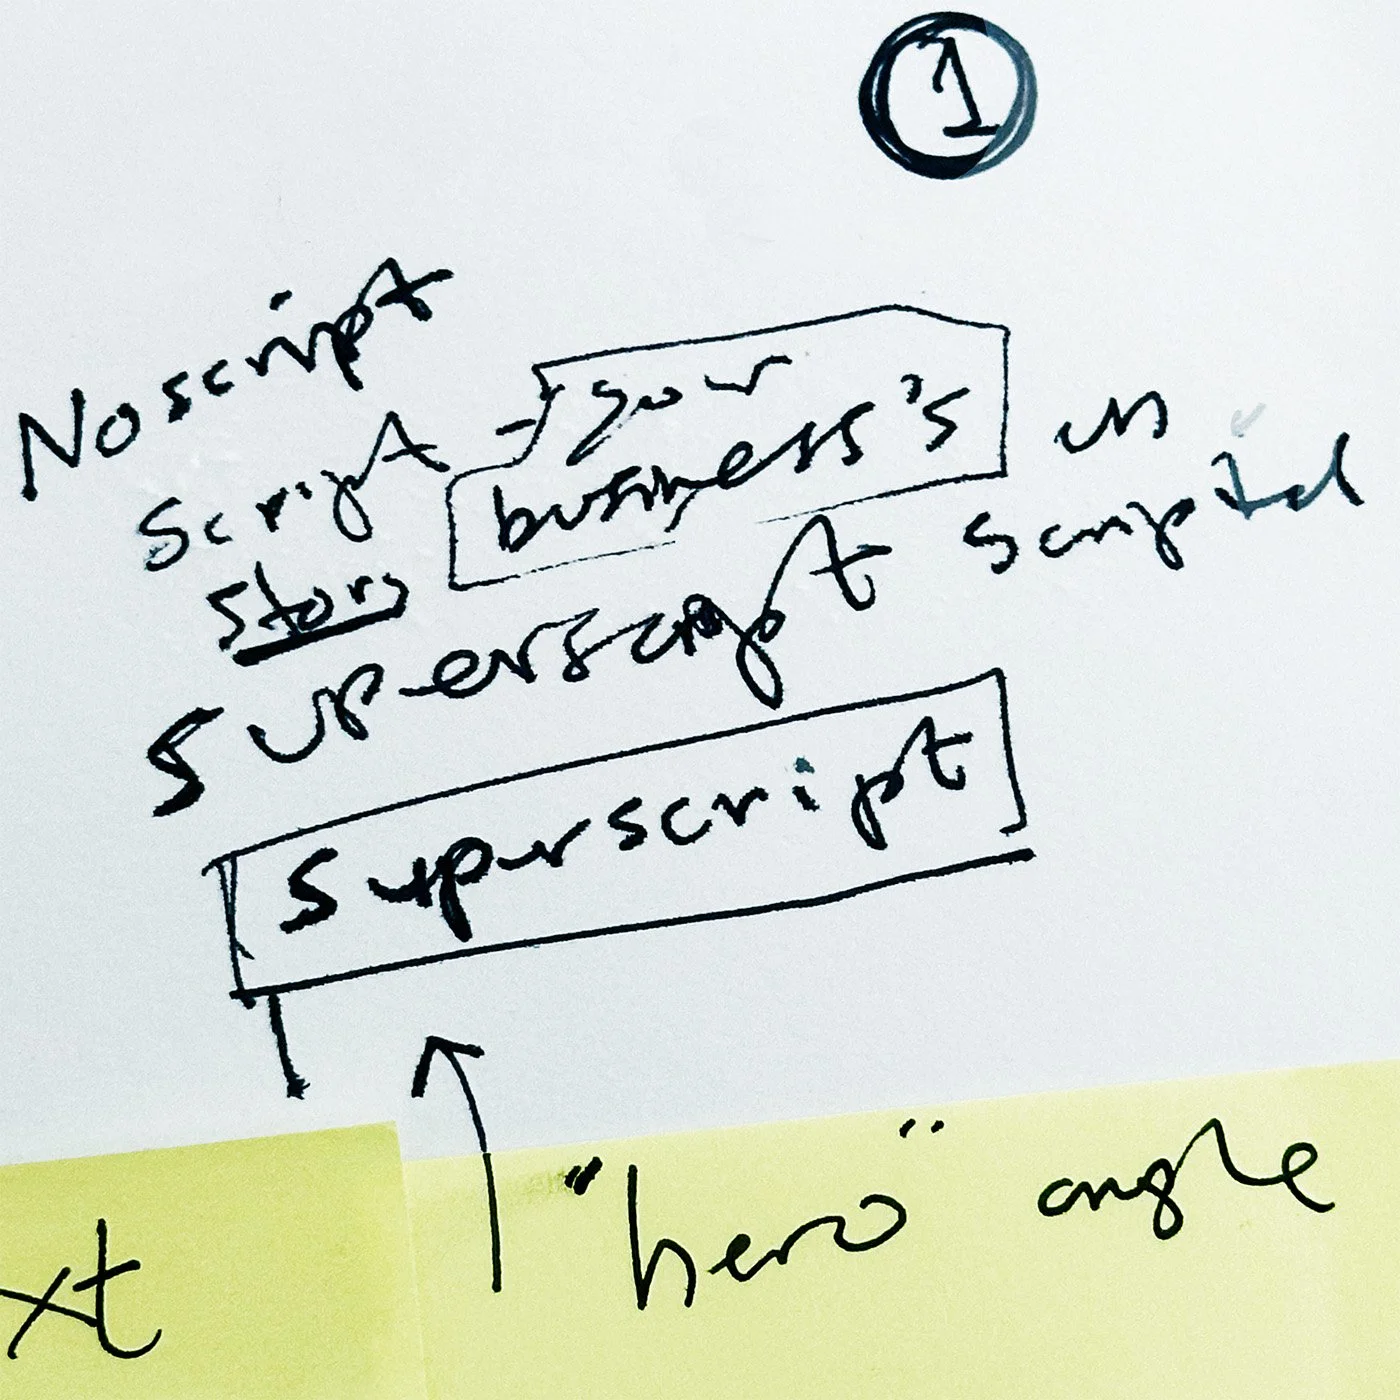 1
Noscript
Script - your
business's
Story
Superscript
unscripted
Superscript
"hero" angle
xt